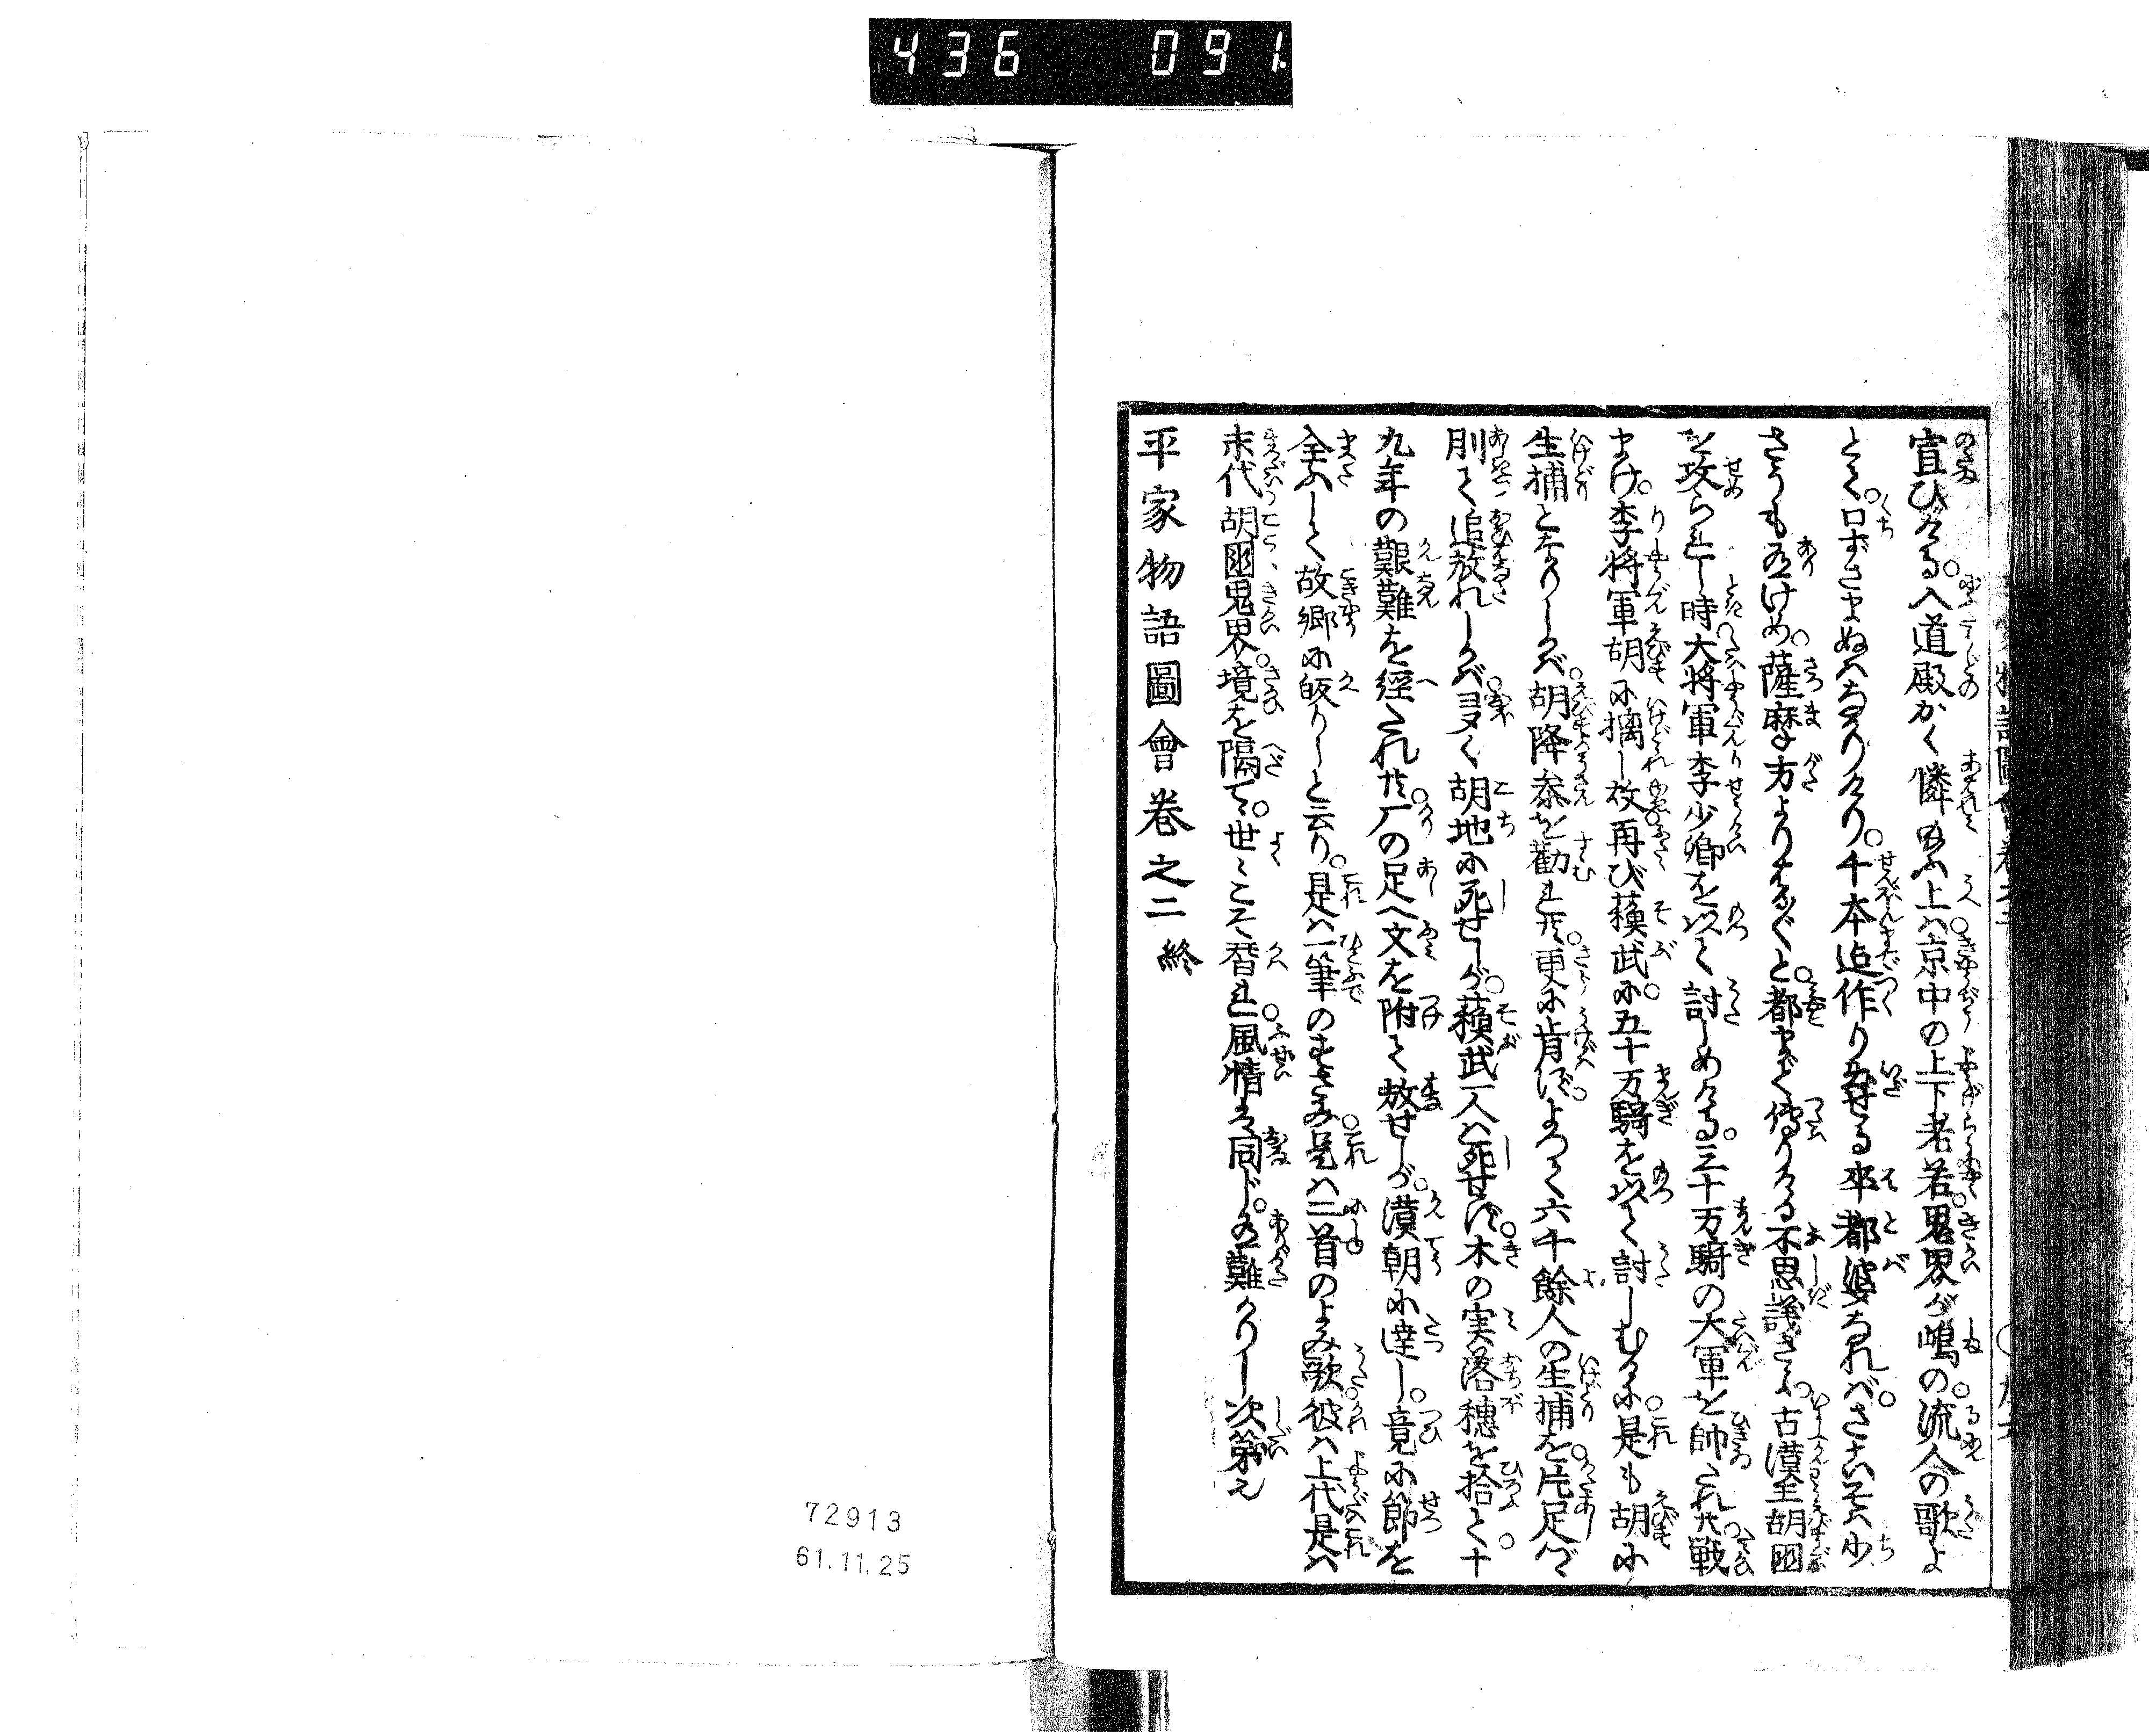 436 091.
宣ひける。入道殿かく憐給ふ上ハ京中の上下老若。鬼界が嶋の流人の歌よ
とて。口ずさまぬハなかりけり。千本迄作り出せる卒都婆なれバ。さこそハ少
さうも有けめ。薩摩方よりはる〴〵と。都まで傳りける不思議さよ。古漢王胡国
を攻られし時。大将軍李少卿を以て討しめける。三十万騎の大軍を帥たれ共。戦
まけ。李将軍胡に擒し故。再び蘓武に。五十万騎を以て討しむるに。是も胡に
生捕となりしかバ。胡降参を勸れ共。更に肯ず。よつて六千餘人の生捕を。片足づゝ
刖て追放れしかバ。多く胡地に死せしが。蘓武一人ハ死せず。木の実落穂を拾て。十
九年の艱難を經たれ共。厂の足へ文を附て放せしが。漢朝に達し。竟に節を
全ふして。故郷に皈りしと云り。是ハ一筆のすさみ。是ハ二首のよみ歌。彼ハ上代。是ハ
末代。胡国鬼界。境を隔て。世〻こそ替れ。風情は同じ。有難かりし次第也
平家物語圖會卷之二終
72913
61.11.25